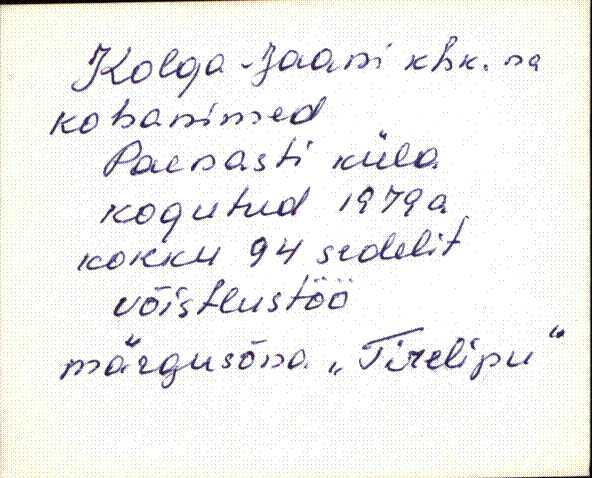 Kolga-Jaani khk. na
kohanimed
Paenasti küla
kogutud 1979a
kokku 94 sedelit
võistlustöö
märgusõna „Tirelipu"